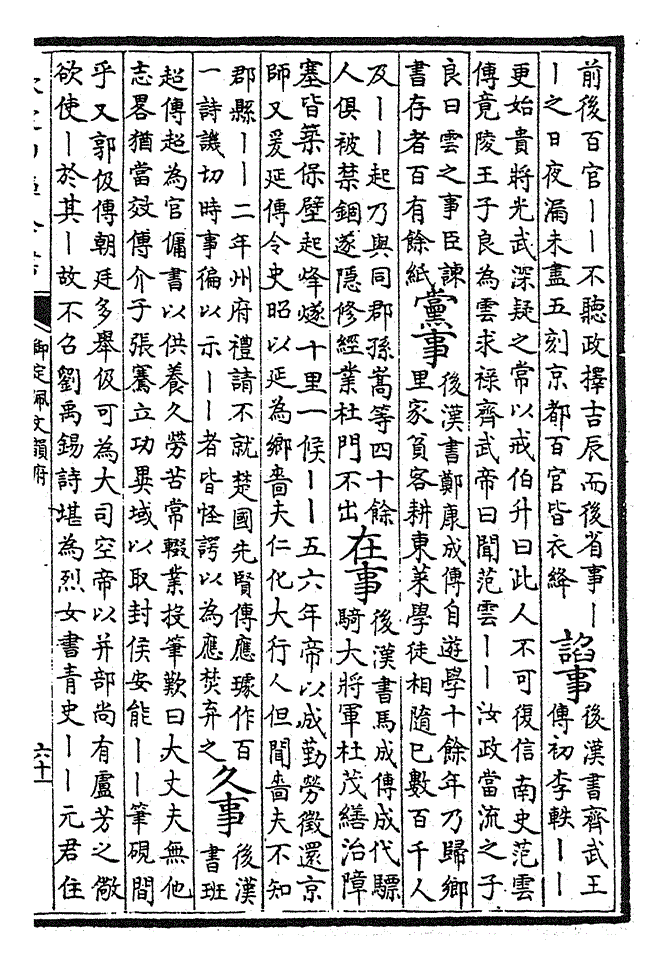 前後百官丨丨不聽政擇吉辰而後省事丨
丨之日夜漏未盡五刻京都百官皆衣絳
諂事
後漢書齊武王
傳初李軼丨丨
更始貴將光武深疑之常以戒伯升曰此人不可復信南史范雲
傳竟陵王子良為雲求祿齊武帝曰聞范雲丨丨汝政當流之子
良曰雲之事臣諫
書存者百有餘紙
黨事
後漢書鄭康成傳自遊學十餘年乃歸鄉
里家貧客耕東萊學徒相隨已數百千人
及丨丨起乃與同郡孫嵩等四十餘
人俱被禁錮遂隱修經業杜門不出
在事
後漢書馬成傳成代驃
騎大將軍杜茂繕治障
塞皆築保壁起烽燧十里一候丨丨五六年帝以成勤勞徵還京
師又爰延傳令史昭以延為鄉嗇夫仁化大行人但聞嗇夫不知
郡縣丨丨二年州府禮請不就楚國先賢傳應璩作百
一詩譏切時事徧以示丨丨者皆怪諤以為應焚弃之
久事
後漢
書班
超傳超為官傭書以供養久勞苦常輟業投筆歎曰大丈夫無他
志畧猶當效傅介子張騫立功異域以取封侯安能丨丨筆硯間
乎又郭伋傳朝廷多舉伋可為大司空帝以并部尚有盧芳之儆
欲使丨於其丨故不召劉禹錫詩堪為烈女書青史丨丨元君住
御定佩文韻府
六十